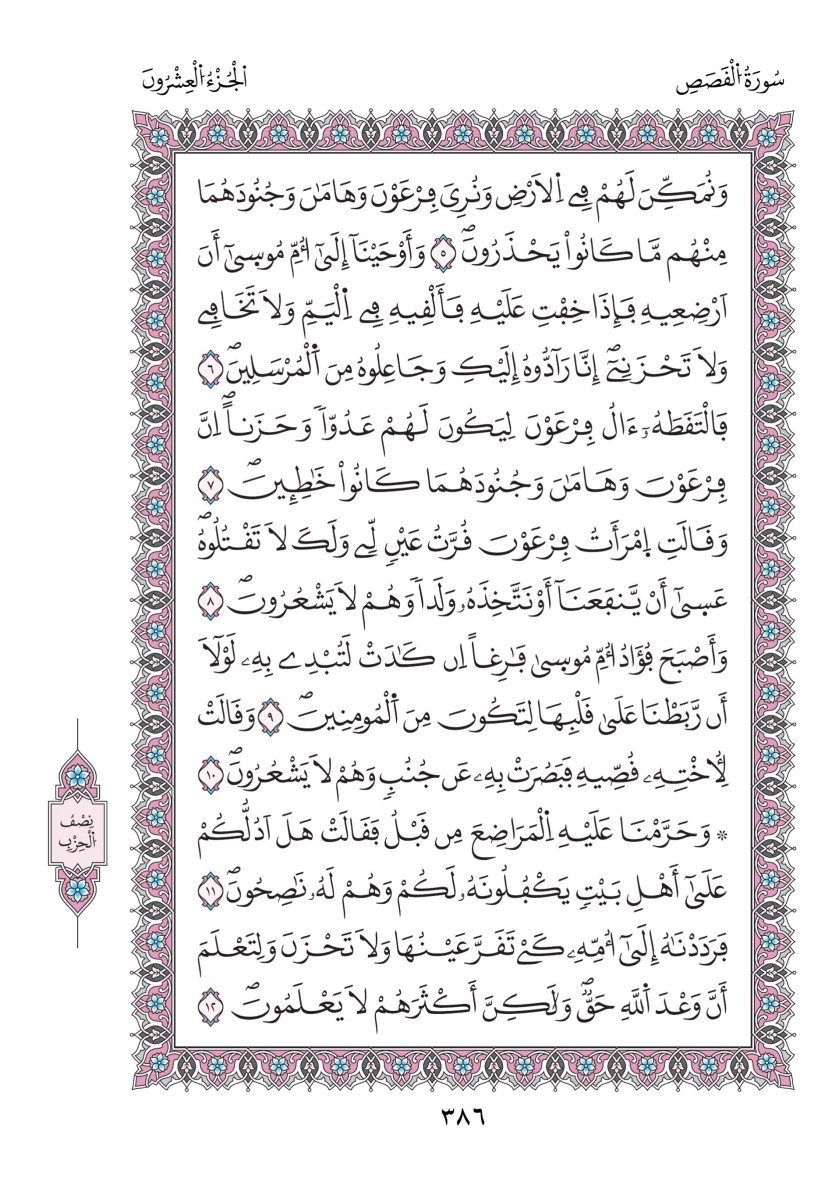 سُورَةُ اُلْقَصَصِ
اَلْجُزْءُ اُلْعِشْرُونَ
وَنُمَكِّنَ لَهُمْ فِے اِلَارْضِ وَنُرِيَ فِرْعَوْنَ وَهَامَٰنَ وَجُنُودَهُمَا
مِنْهُم مَّا كَانُواْ يَحْذَرُونَۖ ٥ وَأَوْحَيْنَآ إِلَىٰٓ أُمِّ مُوس۪ىٰٓ أَنَ
اَرْضِعِيهِ فَإِذَا خِفْتِ عَلَيْهِ فَأَلْقِيهِ فِے اِلْيَمِّ وَلَا تَخَافِے
وَلَا تَحْزَنِےٓۖ إِنَّا رَآدُّوهُ إِلَيْكِ وَجَاعِلُوهُ مِنَ اَلْمُرْسَلِينَۖ ٦
فَالْتَقَطَهُۥٓ ءَالُ فِرْعَوْنَ لِيَكُونَ لَهُمْ عَدُوّاٗ وَحَزَناًۖ اِنَّ
فِرْعَوْنَ وَهَامَٰنَ وَجُنُودَهُمَا كَانُواْ خَٰطِـِٕينَۖ ٧
وَقَالَتِ اِمْرَأَتُ فِرْعَوْنَ قُرَّتُ عَيْنٖ لِّے وَلَكَۖ لَا تَقْتُلُوهُۖ
عَس۪ىٰٓ أَنْ يَّنفَعَنَآ أَوْ نَتَّخِذَهُۥ وَلَداٗ وَهُمْ لَا يَشْعُرُونَۖ ٨
وَأَصْبَحَ فُؤَادُ أُمِّ مُوس۪ىٰ فَٰرِغاً اِن كَادَتْ لَتُبْدِے بِهِۦ لَوْلَآ
أَن رَّبَطْنَا عَلَىٰ قَلْبِهَا لِتَكُونَ مِنَ اَلْمُومِنِينَۖ ٩ وَقَالَتْ
لِأُخْتِهِۦ قُصِّيهِ فَبَصُرَتْ بِهِۦ عَن جُنُبٖ وَهُمْ لَا يَشْعُرُونَۖ ١٠
* وَحَرَّمْنَا عَلَيْهِ اِلْمَرَاضِعَ مِن قَبْلُ فَقَالَتْ هَلَ اَدُلُّكُمْ
عَلَىٰٓ أَهْلِ بَيْتٖ يَكْفُلُونَهُۥ لَكُمْ وَهُمْ لَهُۥ نَٰصِحُونَۖ ١١
فَرَدَدْنَٰهُ إِلَىٰٓ أُمِّهِۦ كَےْ تَقَرَّ عَيْنُهَا وَلَا تَحْزَنَ وَلِتَعْلَمَ
أَنَّ وَعْدَ اَللَّهِ حَقّٞۖ وَلَٰكِنَّ أَكْثَرَهُمْ لَا يَعْلَمُونَۖ ١٢
نِصْفُ
اُلْحِزْبِ
٣٨٦